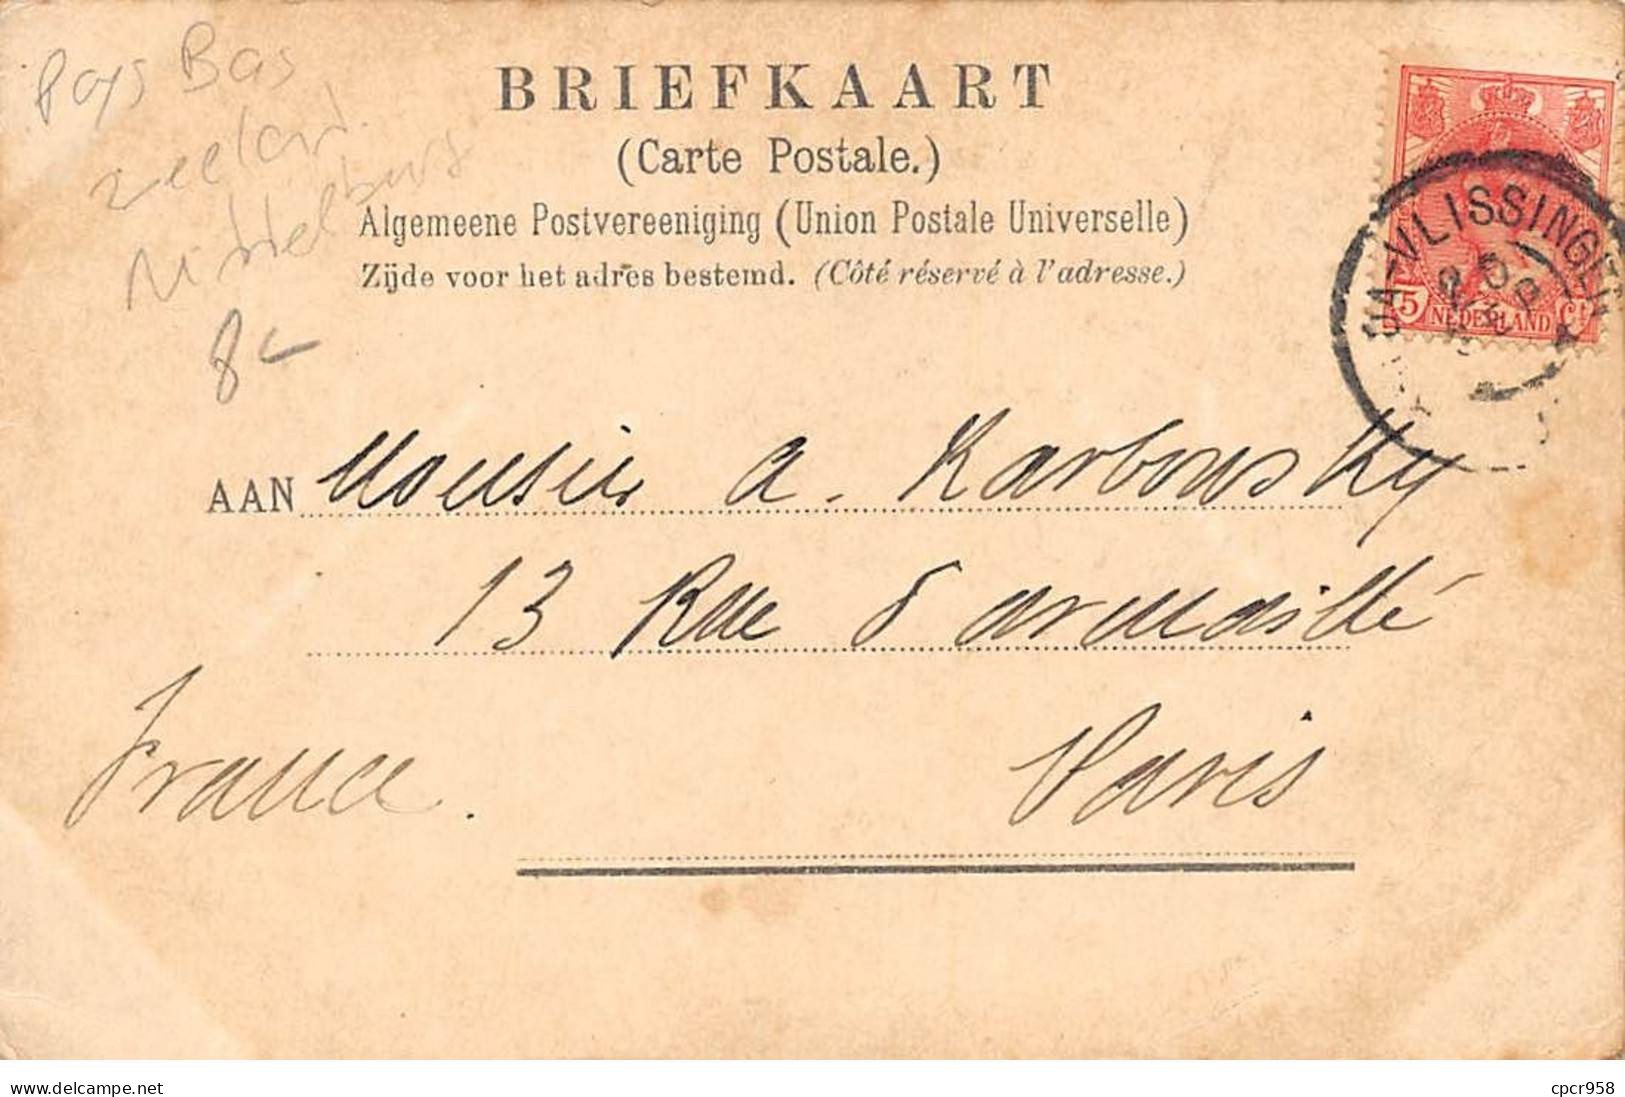 Pays Bas
Zeeland
Middelburg
8
BRIEFKAART
(Carte Postale.)
Algemeene Postvereeniging (Union Postale Universelle)
Zijde voor het adres bestemd. (Côté réservé à l'adresse.)
5 NEDERLAND Ct
VLISSINGEN
SEP
AAN Monsieur A. Karbowsky
13 Rue d'armaillé
Paris
France.
www.delcampe.net
cpcr958